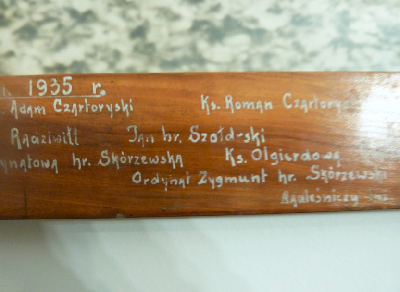 1935 r.
Adam Czartoryski Ks. Roman Czartorys
Radziwiłł Jan hr. Szołd-ski
ynatowa hr. Skórzewska Ks. Olgierdowa
Ordynat Zygmunt hr. Skórzewski